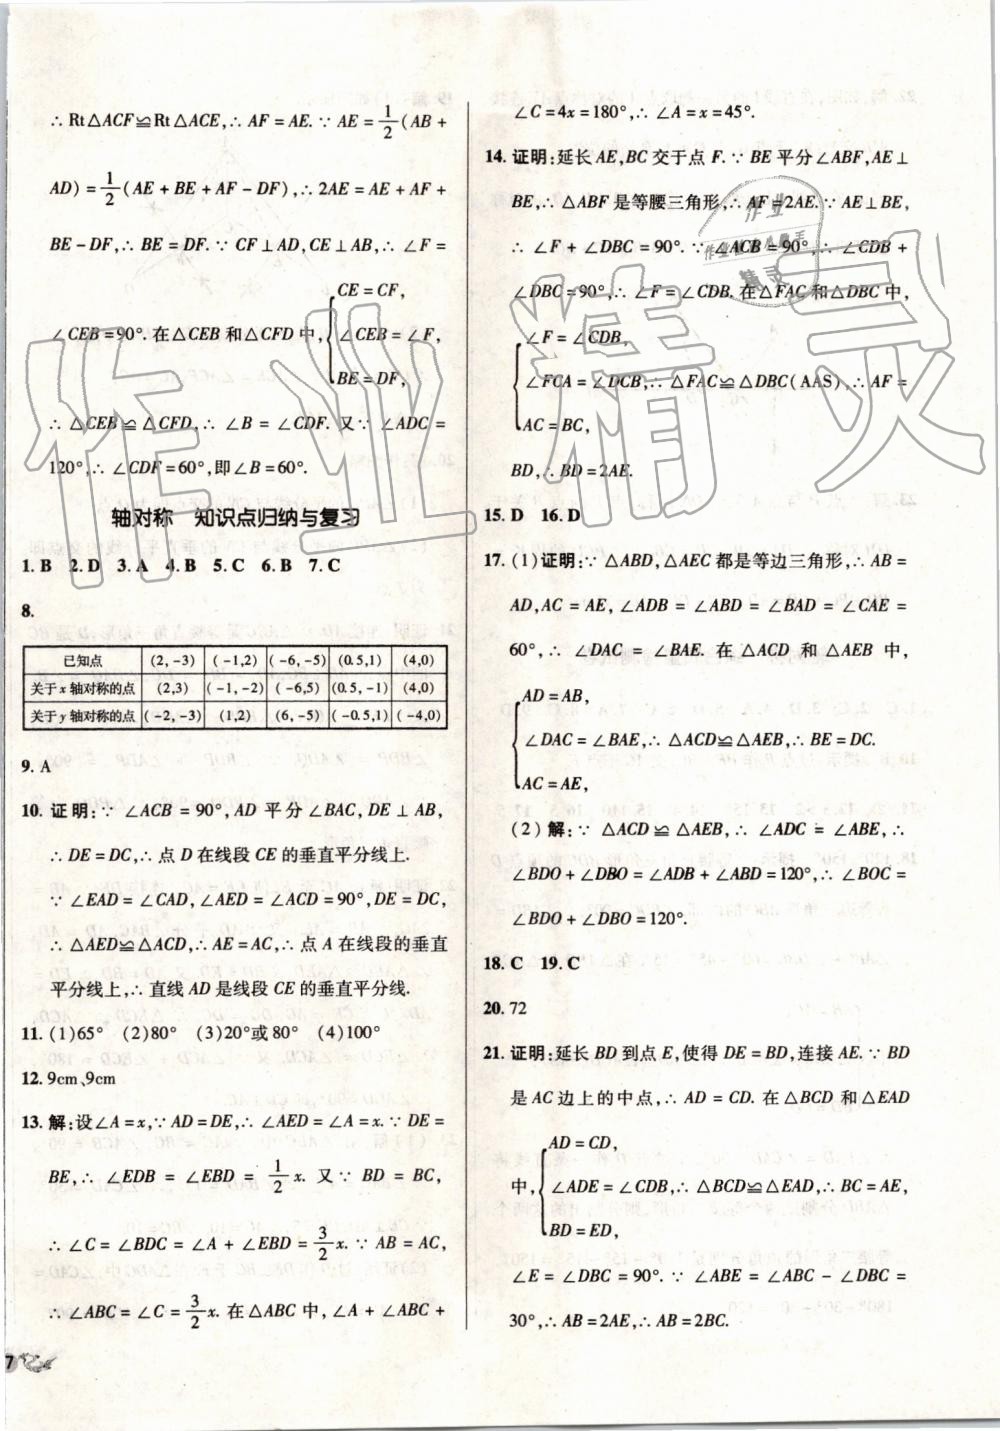 ∴ Rt△ACF≌Rt△ACE,∴ AF = AE. ∵ AE = 1/2(AB +
AD) = 1/2(AE + BE + AF - DF),∴ 2AE = AE + AF +
BE - DF,∴ BE = DF. ∵ CF⊥AD,CE⊥AB,∴ ∠F =
∠CEB = 90°. 在△CEB 和△CFD 中, { CE = CF,
∠CEB = ∠F,
BE = DF,
∴ △CEB≌△CFD,∴ ∠B = ∠CDF. 又 ∵ ∠ADC =
120°,∴ ∠CDF = 60°,即∠B = 60°.
轴对称 知识点归纳与复习
1. B 2. D 3. A 4. B 5. C 6. B 7. C
8.
已知点 (2, -3) ( -1,2) ( -6, -5) (0.5,1) (4,0)
关于 x 轴对称的点 (2,3) ( -1, -2) ( -6,5) (0.5, -1) (4,0)
关于 y 轴对称的点 ( -2, -3) (1,2) (6, -5) ( -0.5,1) ( -4,0)
9. A
10. 证明:∵ ∠ACB = 90°,AD 平分∠BAC,DE⊥AB,
∴ DE = DC,∴ 点 D 在线段 CE 的垂直平分线上.
∵ ∠EAD = ∠CAD,∠AED = ∠ACD = 90°,DE = DC,
∴ △AED≌△ACD,∴ AE = AC,∴ 点 A 在线段的垂直
平分线上,∴ 直线 AD 是线段 CE 的垂直平分线.
11. (1)65° (2)80° (3)20°或 80° (4)100°
12. 9cm、9cm
13. 解:设∠A = x,∵ AD = DE,∴ ∠AED = ∠A = x. ∵ DE =
BE,∴ ∠EDB = ∠EBD = 1/2 x. 又 ∵ BD = BC,
∴ ∠C = ∠BDC = ∠A + ∠EBD = 3/2 x. ∵ AB = AC,
∴ ∠ABC = ∠C = 3/2 x. 在△ABC 中,∠A + ∠ABC +
7
∠C = 4x = 180°,∴ ∠A = x = 45°.
14. 证明:延长 AE,BC 交于点 F. ∵ BE 平分∠ABF,AE⊥
BE,∴ △ABF 是等腰三角形,∴ AF = 2AE. ∵ AE⊥BE,
∴ ∠F + ∠DBC = 90°. ∵ ∠ACB = 90°,∴ ∠CDB +
∠DBC = 90°,∴ ∠F = ∠CDB. 在△FAC 和△DBC 中,
{ ∠F = ∠CDB,
∠FCA = ∠DCB,∴ △FAC≌△DBC(AAS),∴ AF =
AC = BC,
BD,∴ BD = 2AE.
15. D 16. D
17. (1)证明:∵ △ABD,△AEC 都是等边三角形,∴ AB =
AD,AC = AE,∠ADB = ∠ABD = ∠BAD = ∠CAE =
60°,∴ ∠DAC = ∠BAE. 在△ACD 和△AEB 中,
{ AD = AB,
∠DAC = ∠BAE,∴ △ACD≌△AEB,∴ BE = DC.
AC = AE,
(2)解:∵ △ACD≌△AEB,∴ ∠ADC = ∠ABE,∴
∠BDO + ∠DBO = ∠ADB + ∠ABD = 120°,∴ ∠BOC =
∠BDO + ∠DBO = 120°.
18. C 19. C
20. 72
21. 证明:延长 BD 到点 E,使得 DE = BD,连接 AE. ∵ BD
是 AC 边上的中点,∴ AD = CD. 在△BCD 和△EAD
中, { AD = CD,
∠ADE = ∠CDB,∴ △BCD≌△EAD,∴ BC = AE,
BD = ED,
∠E = ∠DBC = 90°. ∵ ∠ABE = ∠ABC - ∠DBC =
30°,∴ AB = 2AE,∴ AB = 2BC.
作业精灵
作业
精灵